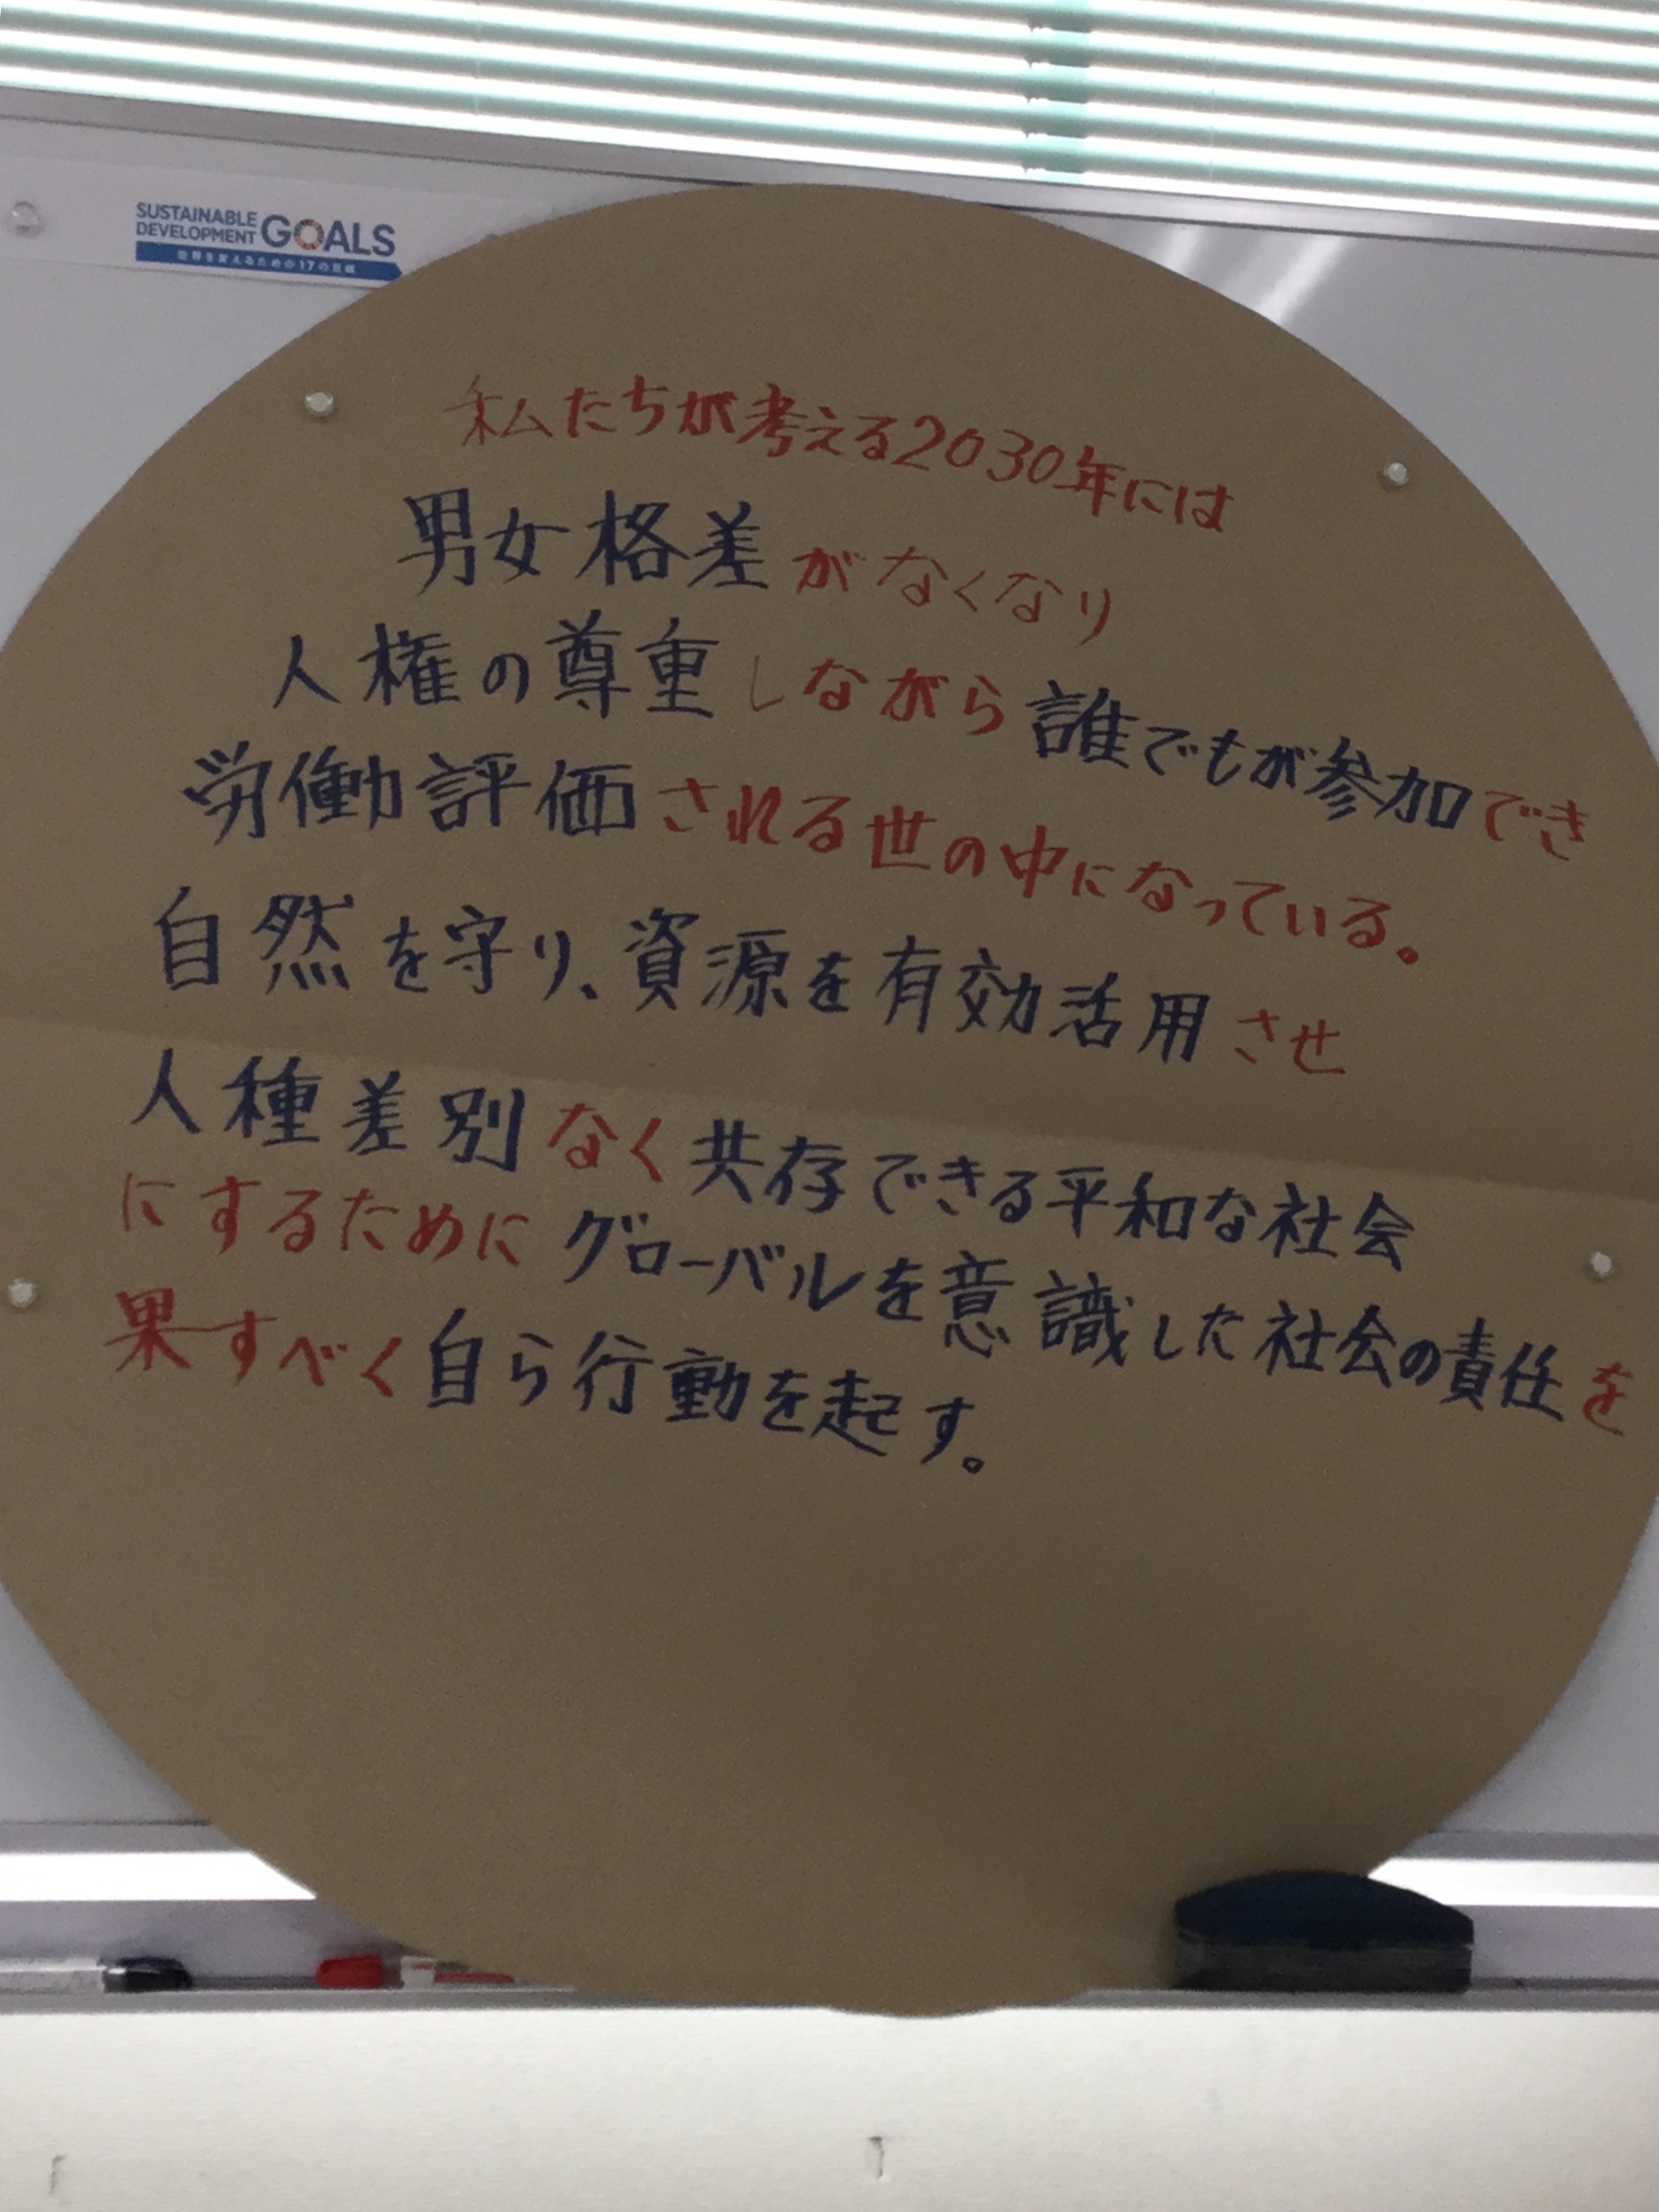 SUSTAINABLE
DEVELOPMENT GOALS
世界を変えるための17の目標
私たちが考える2030年には
男女格差がなくなり
人権の尊重しながら誰でもが参加でき
労働評価される世の中になっている。
自然を守り、資源を有効活用させ
人種差別なく共存できる平和な社会
にするためにグローバルを意識した社会の責任を
果すべく自ら行動を起す。